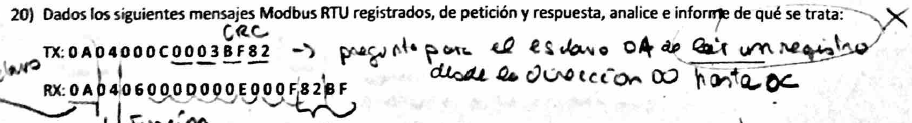 20) Dados los siguientes mensajes Modbus RTU registrados, de petición y respuesta, analice e informe de qué se trata:
CRC
TX: 0A04000C0003BF82 -> pregunta para el esclavo 0A de leir un registro
desde la dirección 00 hasta 0C
RX: 0A0406000D000E000F82BF
Función